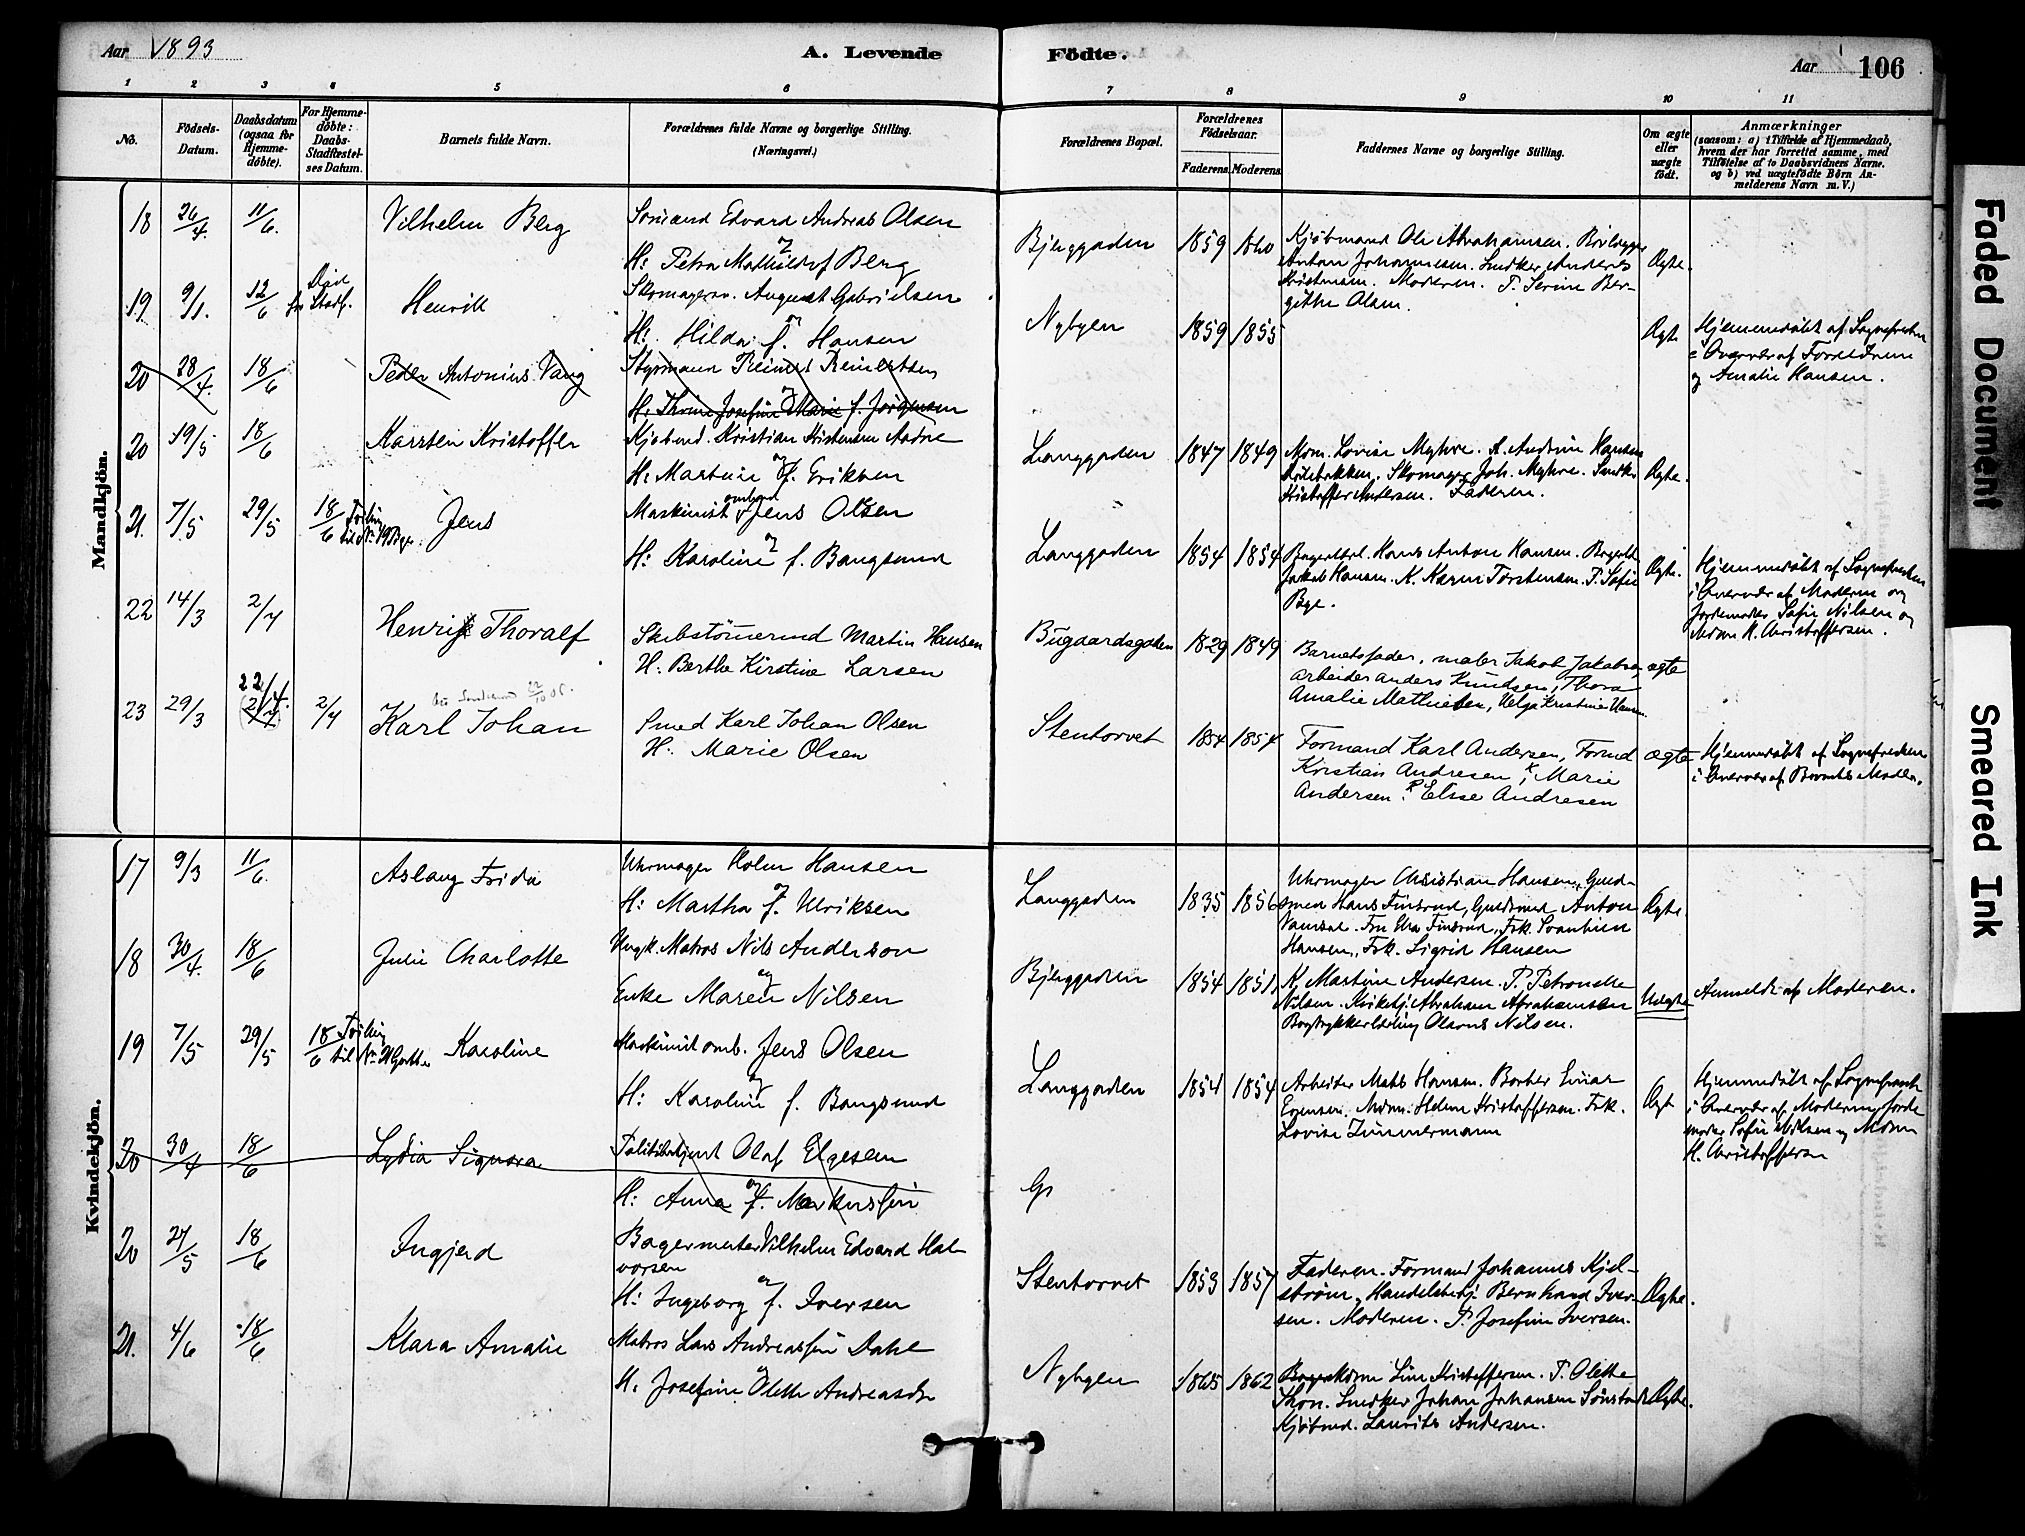 Aar 1893
A. Levende
Födte.
Aar
106
1 2 3 4 5 6
7 8 9 10 11
No.
Födsels-
Datum.
Daabsdatum
(ogsaa for
Hjemme-
döbte).
For Hjemme-
döbte:
Daabs-
Stadfæstel-
ses Datum.
Barnets fulde Navn.
Forældrenes fulde Navne og borgerlige Stilling.
(Næringsvei.)
Forældrenes Bopæl.
Forældrenes
Födselsaar.
Faderens. Moderens.
Faddernes Navne og borgerlige Stilling.
Om ægte
eller
uægte
födt.
Anmærkninger
(saasom: a) i Tilfælde af Hjemmedaab,
hvem der har forrettet samme, med
Tilföielse af to Daabsvidners Navne.
og b) ved uægtefödte Börn An-
melderens Navn m. V.)
Mandkjön.
18 26/4. 11/6. Vilhelm Berg
Sömand Edvard Andreas Olsen
og
H: Petra Mathilde f. Berg
Bjerggaden 1859 1860
Kjöbmand Ole Abrahamsen.
Anton Johannesen. Snedker Anders
Kristensen. Moderen. P. Serine Ber-
githe Olsen.
Ægte.
19 9/1. 12/6 Henrik
Skomagersv. August Gabrielsen
og
H: Hilda f. Hansen
Nybyen 1859 1855 Ægte
Hjemmedöbt af Sognepresten
i Overvær af Forældrene
og Amalie Hansen.
20 28/4. 18/6 Peder Antonius Vang
Styrmand Reinert Reinertsen
og
H: Thrine Josefine Marie f. Jörgensen
20 19/5 18/6 Karsten Kristoffer
Kjöbmd. Kristian Kristensen Aadne
og
H: Martine f. Eriksen
Langgaden 1847 1849
Mdm. Lovise Myhre. K. Andrine Hansen
Skomager Joh. Myhre. Snedker
Kristoffer Andersen. Faderen.
Ægte.
21. 7/5 29/5 18/6 Tvilling til No. 19 Piger. Jens
ombord
Maskinist Jens Olsen
og
H: Karoline f. Bangsund
Langgaden 1854 1854
Hans Anton Hansen.
Jakob Hansen. K. Karen Torstensen. P. Sofie
Bye.
Ægte.
Hjemmedöbt af Sognepresten
i Overvær af Moderen og
Jordemoder Sofie Nilsen og
Mdm H. Christoffersen.
22 14/3 2/7 Henrik Thoralf
Skibstömermd Martin Hansen
H: Berthe Kirstine Larsen
Bugaardsgaden 1829 1849
Barnetsfader, maler Jakob Jakobsen,
arbeider Anders Knudsen, Thora
Amalie Mathiesen, Helga Kristine Hansen.
ægte
23 29/3 22/4. (2/7) 2/7 Karl Johan
Smed Karl Johan Olsen
H: Marie Olsen
Stentorvet 1854 1854
Formand Karl Andersen, Formd
Kristian Andresen, K Marie
Andersen. P Elise Andresen
ægte
Hjemmedöbt af Sognepresten
i Overvær af Barnets Moder.
Kvindekjön.
17 9/3 11/6. Aslaug Frida
Uhrmager Holm Hansen
og
H: Martha f. Ulriksen
Langgaden 1835 1856
Uhrmager Christian Hansen, Guld-
smed Hans Finsrud, Guldsmed Anton
Hansen, Frk. Sigrid Hansen
Ægte.
18 30/4. 18/6 Julie Charlotte
Ungk. Matros Nils Anderson
og
Enke Maren Nilsen
Bjerggaden 1854 1851.
K. Martine Andersen. P. Petronelle
Nilsen. Kirketj. Abraham Abrahamsen
Bogtrykkerlærling Olavus Nilsen.
Uægte
Anmeldt af Moderen.
19 7/5 29/5 18/6 Tvilling til No. 21 Gutter Karoline
Maskinist omb. Jens Olsen
og
H: Karoline f. Bangsund
Langgaden 1854 1854
Arbeider Mats Hansen. Barber Einar
Evensen. Mdm. Helene Kristoffersen. Frk.
Lovise Zimmermann
Ægte
Hjemmedöbt af Sognepresten
i Overvær af Moderen, Jorde
moder Sofie Nilsen og Mdm
H. Christoffersen
20 30/4 18/6 Lydia Signora
Politibetjent Olaf Elgesem
og
H: Anna f. Markussen
20 27/5 18/6 Ingjerd
Bagermester Vilhelm Edvard Hal-
vorsen
og
H: Ingeborg f. Iversen
Stentorvet 1853 1857
Faderen. Formand Johannes Kjel-
ström, Handelsbetj. Bernhard Iver-
sen. Moderen. P. Josefine Iversen.
Ægte.
21. 4/6 18/6 Klara Amalie
Matros Lars Andreassen Dahl
og
H. Josefine Olette Andreasdtr
Nybyen 1865 1862
Kristoffersen. P. Olette
Thon. Snedker Johan Johansen Sönstad
Kjöbmd. Laurits Andersen.
Ægte.
Faded Document
Smeared Ink